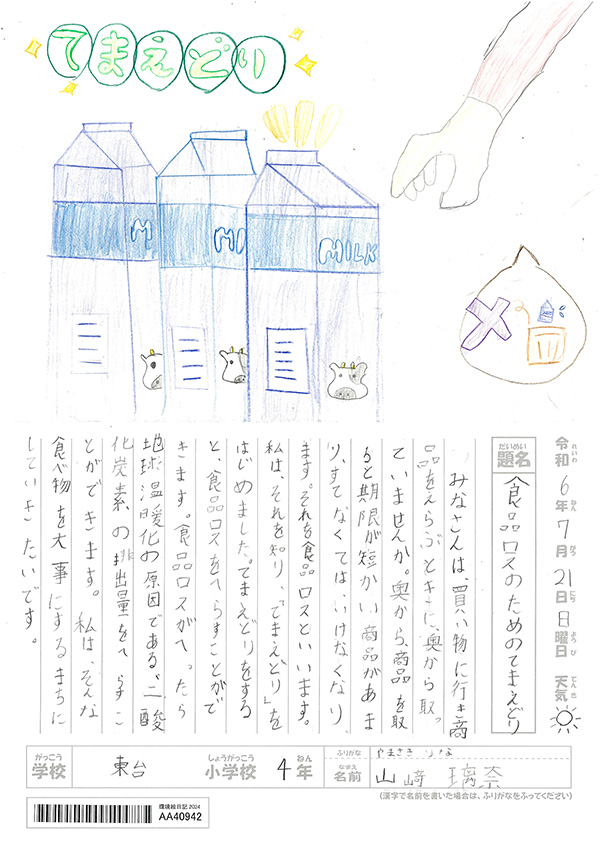 てまえどり
MI
MI
MILK
令和6年7月21日日曜日 天気
れいわ ねん がつ にち ようび てんき
だいめい
題名 食品ロスのためのてまえどり
みなさんは、買い物に行き商
品をえらぶときに、奥から取っ
ていませんか。奥から、商品を取
ると期限が短かい商品があま
り、すてなくては、いけなくなり
ます。それを食品ロスといいます。
私は、それを知り、「てまえどり」を
はじめました。てまえどりをする
と、食品ロスをへらすことがで
きます。食品ロスがへったら
地球温暖化の原因である、二酸
化炭素、の排出量をへらすこ
とができます。私は、そんな
食べ物を大事にするまちに
していきたいです。
がっこう
学校 東台
しょうがっこう
小学校
ねん
4年
ふりがな やまさき りな
なまえ
名前 山﨑 璃奈
(漢字で名前を書いた場合は、ふりがなをふってください)
環境絵日記 2024
AA40942